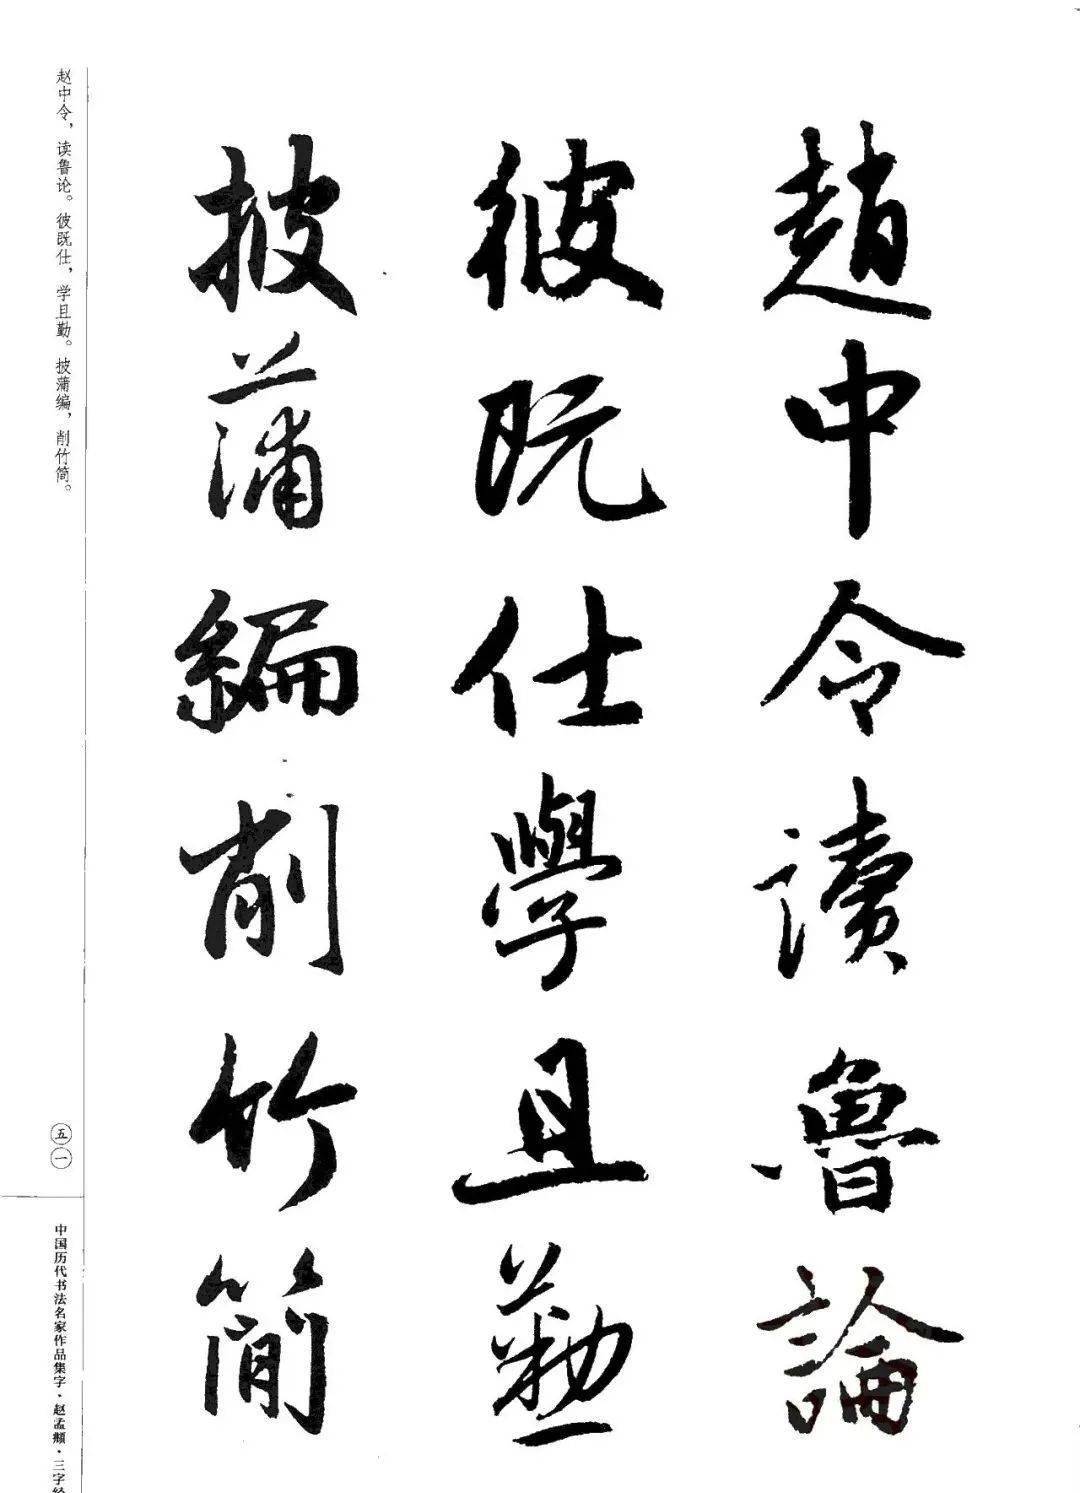 趙中令讀魯論
彼既仕學且勤
披蒲編削竹簡
赵中令，读鲁论。彼既仕，学且勤。披蒲编，削竹简。
五一
中国历代书法名家作品集字·赵孟頫·三字经